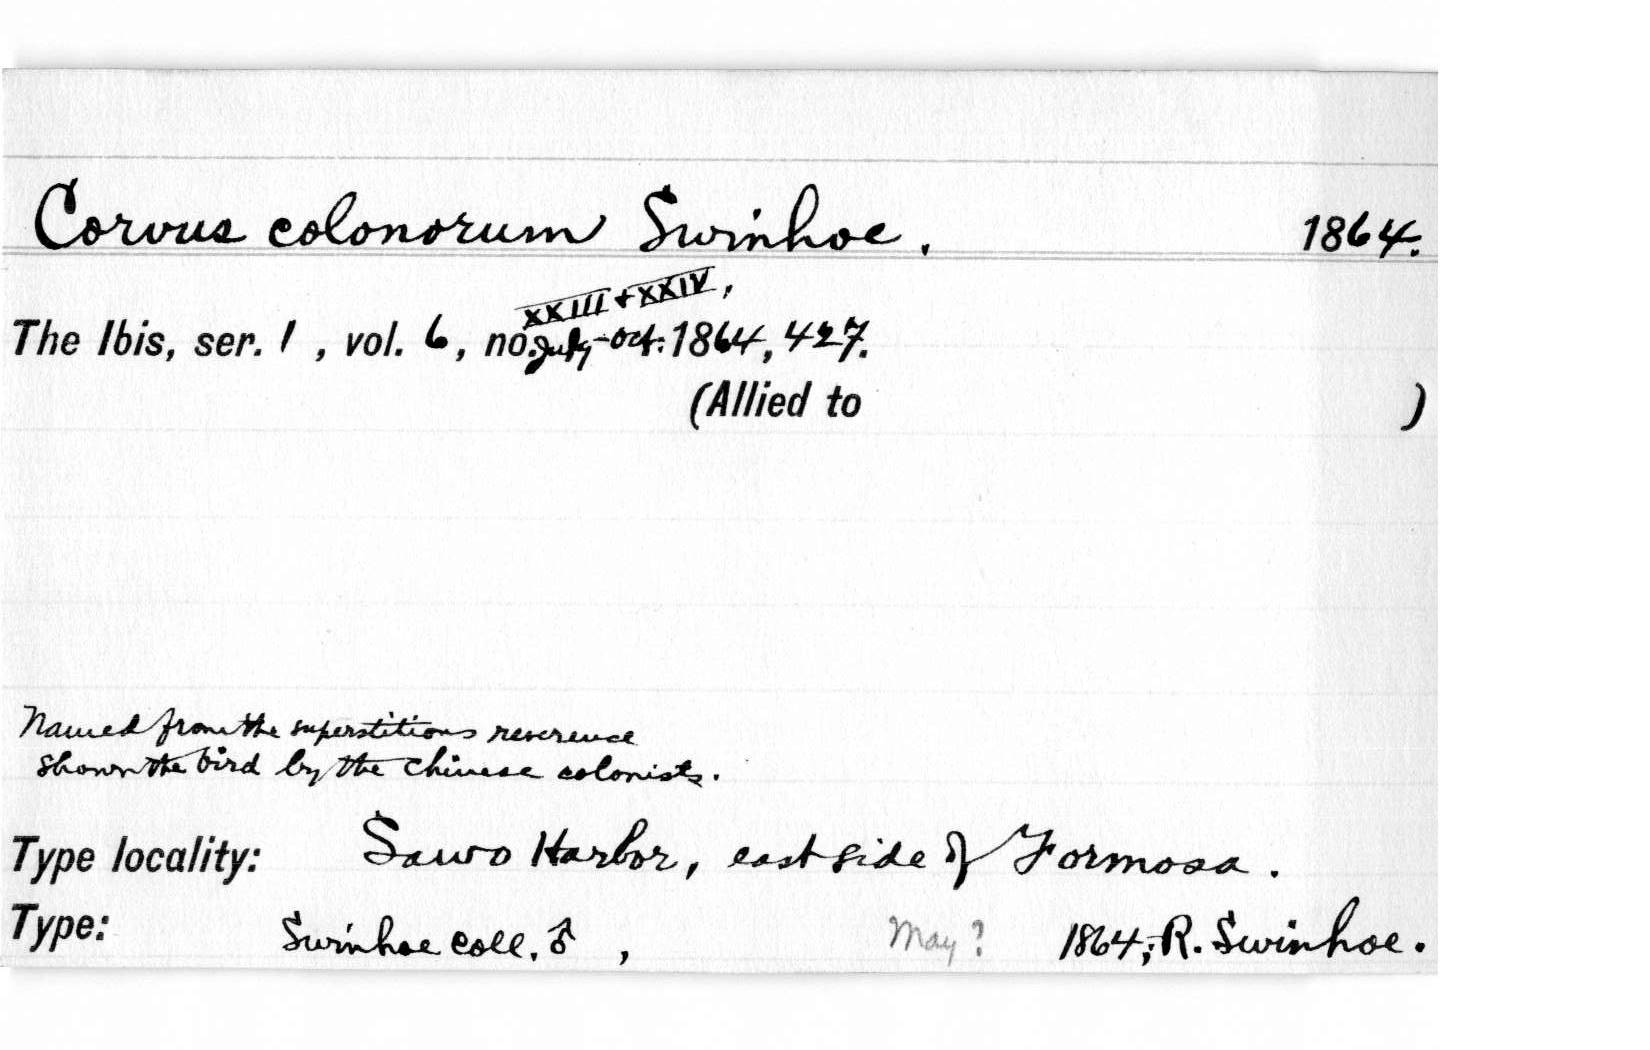 Corvus colonorum Swinhoe. 1864.
XXIII + XXIV,
The Ibis, ser. 1, vol. 6, no. July-Oct. 1864, 427.
(Allied to )
Named from the superstitious reverence
shown the bird by the Chinese colonists.
Type locality: Sawo Harbor, east side of Formosa.
Type: Swinhoe coll. ♂, May? 1864, R. Swinhoe.